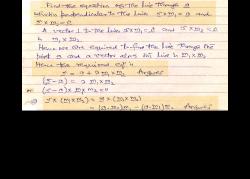 Find the equation of the line through a
which is perpendicular to the lines r × m₁ = a and
r × m₂ = c
A vector ⊥ to the lines r × m₁ = d and r × m₂ = c
is m₁ × m₂
Hence we are required to find the line through the
point a and a vector along this line is m₁ × m₂
Hence the required eqn is
r = a + λ m₁ × m₂ Answer
(r - a) = λ m₁ × m₂
(r - a) × m₁ × m₂ = 0
r × (m₁ × m₂) = a × (m₁ × m₂)
= (a·m₂)m₁ - (a·m₁)m₂ Answer